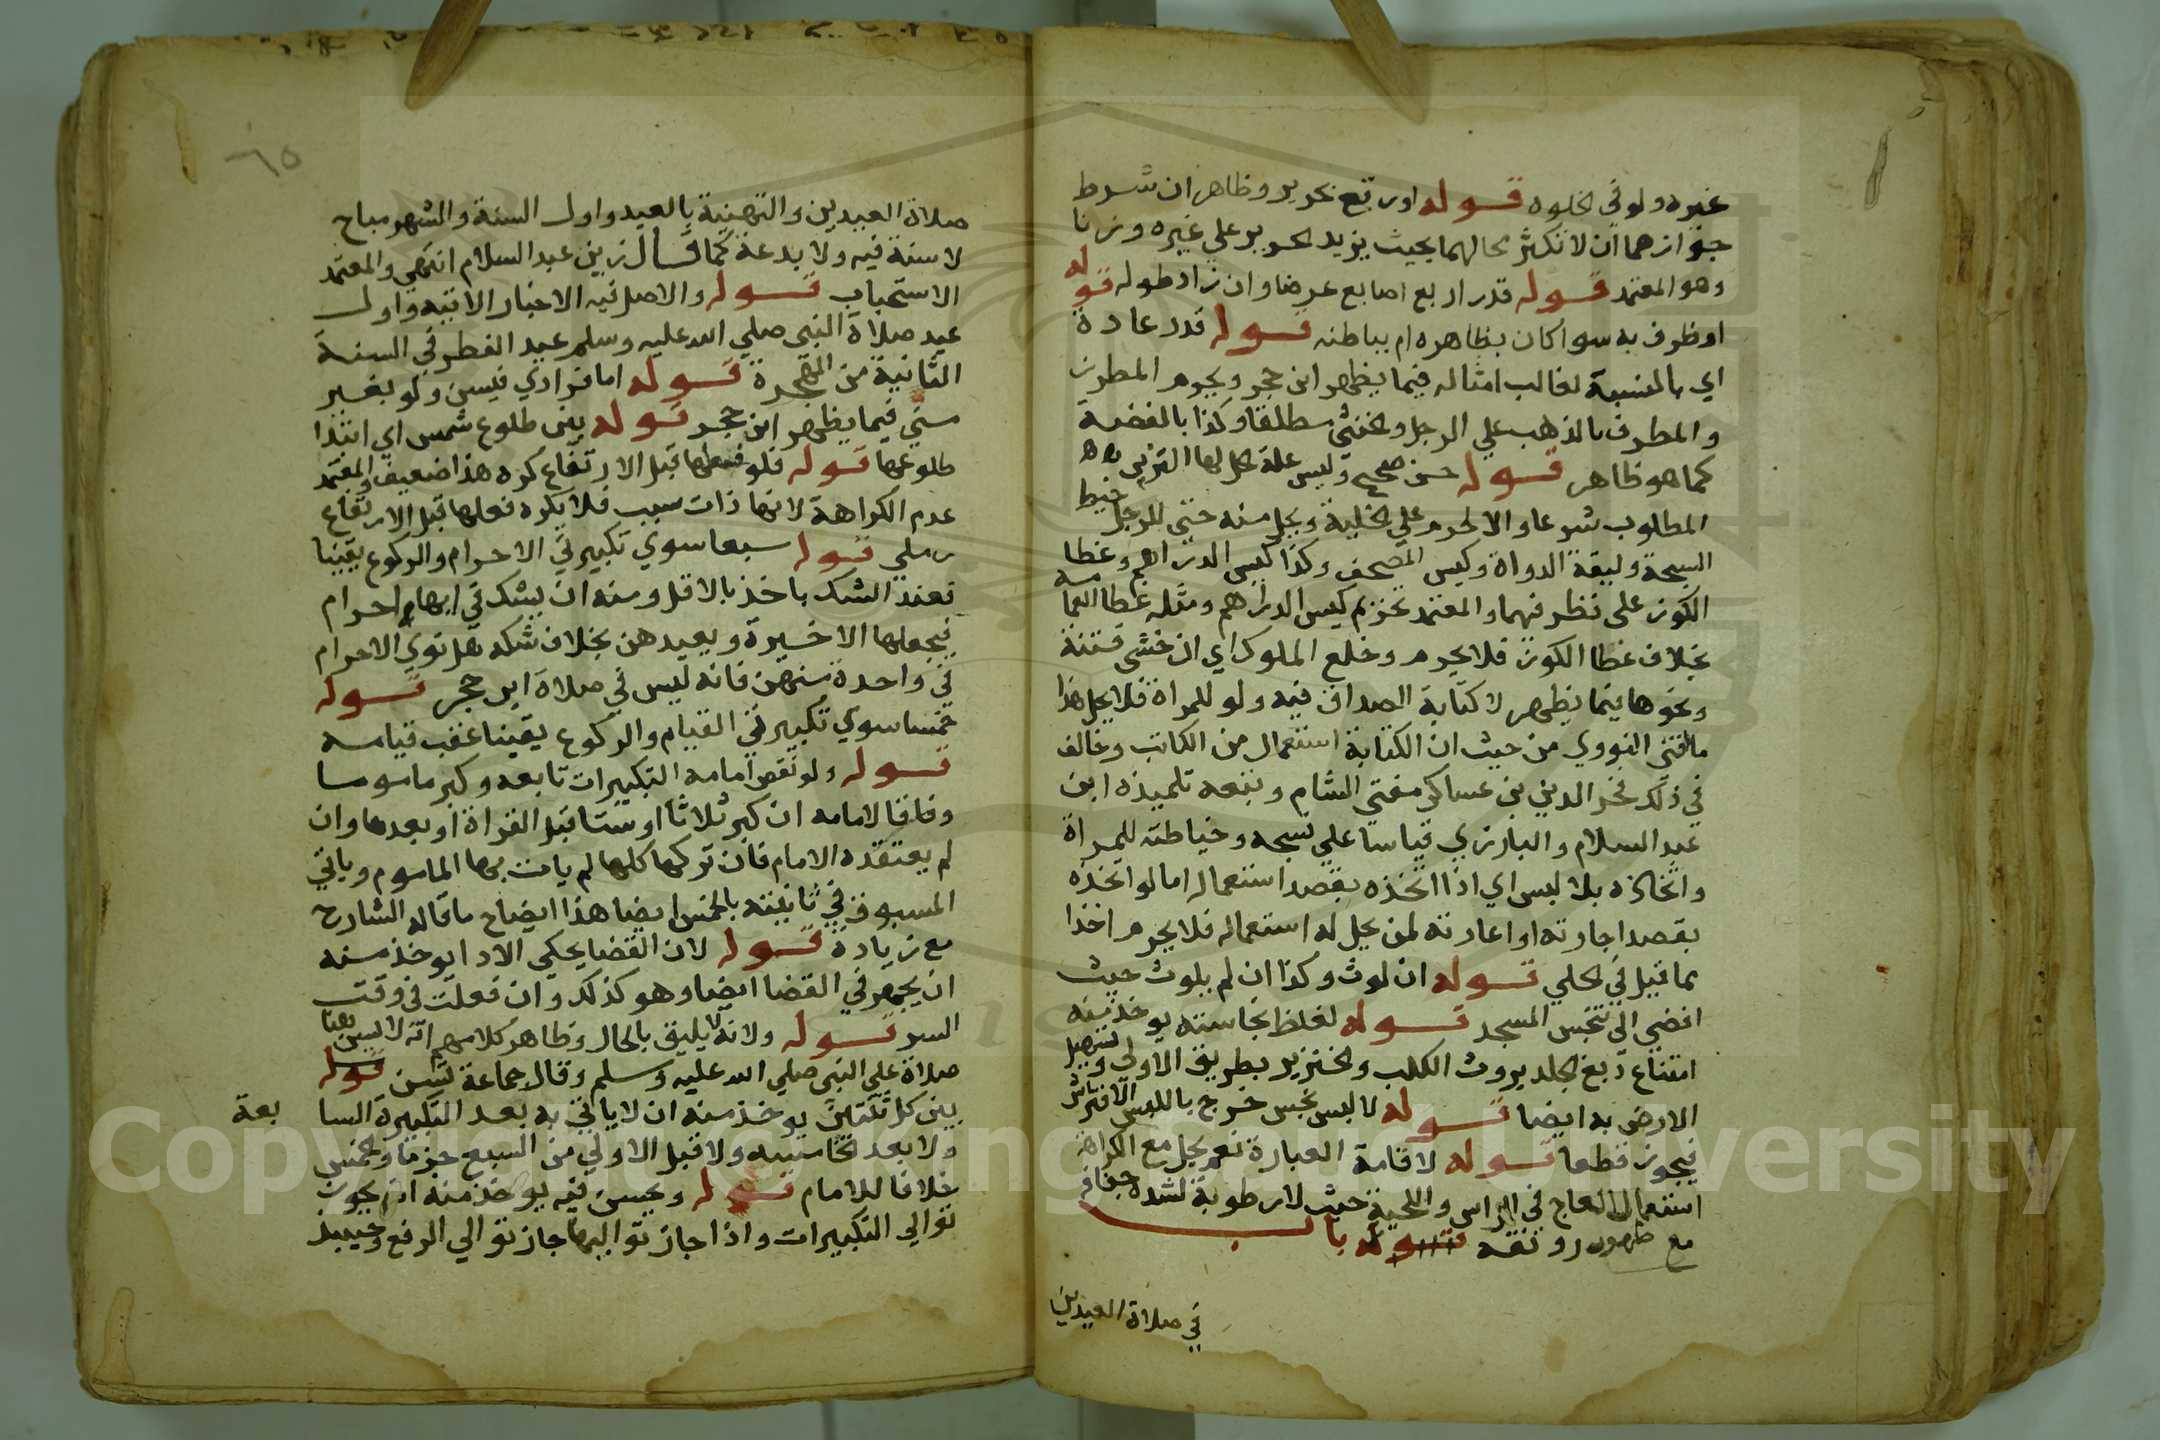 غيره ولو في الخلوه قوله او رقع بحرير وظاهر ان شرط
جوازهما ان لا تكثر محالهما بحيث يزيد الحرير علي غيره وزنا
وهو المعتمد قوله قدر اربع اصابع عرضا وان زاد طوله قوله
او ظرف به سوا كان بظاهره ام بباطنه قوله قدر عادة
اي بالنسبة لغالب امثاله فيما يظهر ابن حجر ويحرم المطرز
والمطرف بالذهب علي الرجل والخنثي مطلقا وكذا بالفضة
كما هو ظاهر قوله حسن صحيح وليس علة حل لها التزين
المطلوب شرعا والا لحرم علي الخلية ويحل منه حتي للرجل خيط
السبحة وليقة الدواة وكيس المصحف وكذا كيس الدراهم وغطا
الكوز على نظر فيهما والمعتمد تحريم كيس الدراهم ومثله غطا العمامة
بخلاف غطا الكوز فلا يحرم وخلع الملوك اي ان خشي فتنة
ونحوها فيما يظهر لا كتابة الصداق فيه ولو للمراة فلا يحل هذا
ما افتي النووي من حيث ان الكتابة استعمال من الكاتب وخالف
في ذلك فخر الدين بن عساكر مفتي الشام وتبعه تلميذه ابن
عبد السلام والبارزي قياسا علي نسجه وخياطته للمراة
واتخاذه بلا لبس اي اذا اتخذه بقصد استعماله اما لو اتخذه
بقصد اجارته او اعارته لمن يحل له استعماله فلا يحرم اخذا
بما قيل في الحلي قوله ان لوث وكذا ان لم يلوث حيث
افضي الي تنجس المسجد قوله لغلظ نجاسته يوخذ منه
امتناع دبغ الجلد بروث الكلب والخنزير بطريق الاولي وتسهيل
الارض به ايضا قوله لا لبس نجس خرج باللبس الافتراش
فيجوز قطعا قوله لاقامة العبارة نعم يحل مع الكراهة
استعمال العاج في الراس واللحية حيث لا رطوبة لشدة جفافه
مع ظهور رونقه قوله باب
في صلاة العيدين
٦٥
صلاة العيدين والتهنية بالعيد واول السنة والشهر مباح
لا سنة فيه ولا بدعة كما قال زين عبد السلام انتهي والمعتمد
الاستحباب قوله والاصل فيه الاخبار الاتيه واول
عيد صلاة النبي صلي الله عليه وسلم عيد الفطر في السنة
الثانية من الهجرة قوله اما فرادي فيسن ولو بغير
مني فيما يظهر ابن حجر قوله بين طلوع شمس اي ابتدا
طلوعها قوله فلو فعلها قبل الارتفاع كره هذا ضعيف والمعتمد
عدم الكراهة لانها ذات سبب فلا يكره فعلها قبل الارتفاع
رملي قوله سبعا سوي تكبيرتي الاحرام والركوع يقينا
فعند الشك ياخذ بالاقل ومنه ان يشك في ايها احرام
فيجعلها الاخيرة ويعيدهن بخلاف شكه هل نوي الاحرام
في واحدة منهن فانه ليس في صلاة ابن حجر قوله
خمسا سوي تكبيرتي القيام والركوع يقينا عقب قيامه
قوله ولو نقص امامه التكبيرات تابعه وكبر ماموما
وفاقا لامامه ان كبر ثلاثا او ستا قبل القراة او بعدها وان
لم يعتقده الامام فان تركها كلها لم يات بها الماموم وياتي
المسبوق في ثانيته بالخمس ايضا هذا ايضاح ما قاله الشارح
مع زيادة قوله لان القضا يحكي الادا يوخذ منه
ان يجهر في القضا ايضا وهو كذلك وان فعلت في وقت
السر قوله ولانه لا يليق بالحال وظاهر كلامهم انه لا يسن بعنا
صلاة علي النبي صلي الله عليه وسلم وقال جماعة تسن قوله
بين كل ثنتين يوخذ منه ان لا ياتي به بعد التكبيرة السا
بعة
ولا بعد خامسه ولا قبل الاولي من السبع جزما والخمس
خلافا للامام قوله ويحسن فيه يوخذ منه انه يجوز
توالي التكبيرات واذا جاز تواليها جاز توالي الرفع وحينيذ